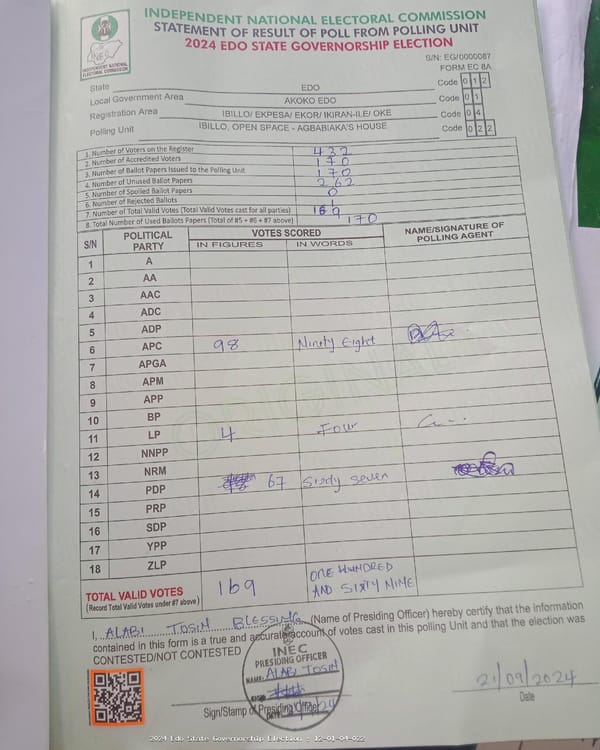 INDEPENDENT NATIONAL ELECTORAL COMMISSION
STATEMENT OF RESULT OF POLL FROM POLLING UNIT
2024 EDO STATE GOVERNORSHIP ELECTION
INEC
INDEPENDENT NATIONAL
ELECTORAL COMMISSION
S/N: EG/0000087
FORM EC 8A
State EDO Code 0 1 2
Local Government Area AKOKO EDO Code 0 1
Registration Area IBILLO/ EKPESA/ EKOR/ IKIRAN-ILE/ OKE Code 0 4
Polling Unit IBILLO, OPEN SPACE - AGBABIAKA'S HOUSE Code 0 2 2
1. Number of Voters on the Register 432
2. Number of Accredited Voters 170
3. Number of Ballot Papers Issued to the Polling Unit 170
4. Number of Unused Ballot Papers 262
5. Number of Spoiled Ballot Papers 0
6. Number of Rejected Ballots 1
7. Number of Total Valid Votes (Total Valid Votes cast for all parties) 169
8. Total Number of Used Ballots Papers (Total of #5 + #6 + #7 above) 170
S/N POLITICAL PARTY VOTES SCORED NAME/SIGNATURE OF POLLING AGENT
IN FIGURES IN WORDS
1 A
2 AA
3 AAC
4 ADC
5 ADP
6 APC 98 Ninety Eight
7 APGA
8 APM
9 APP
10 BP
11 LP 4 Four
12 NNPP
13 NRM
14 PDP 67 Sixty Seven
15 PRP
16 SDP
17 YPP
18 ZLP
TOTAL VALID VOTES 169 ONE HUNDRED
(Record Total Valid Votes under #7 above) AND SIXTY NINE
I, ALABI TOSIN BLESSING (Name of Presiding Officer) hereby certify that the information
contained in this form is a true and accurate account of votes cast in this polling Unit and that the election was
CONTESTED/NOT CONTESTED
INEC
PRESIDING OFFICER
NAME: ALABI TOSIN
SIGN
DATE
21/09/2024
Sign/Stamp of Presiding Officer
Date
2024 Edo State Governorship Election - 12-01-04-022